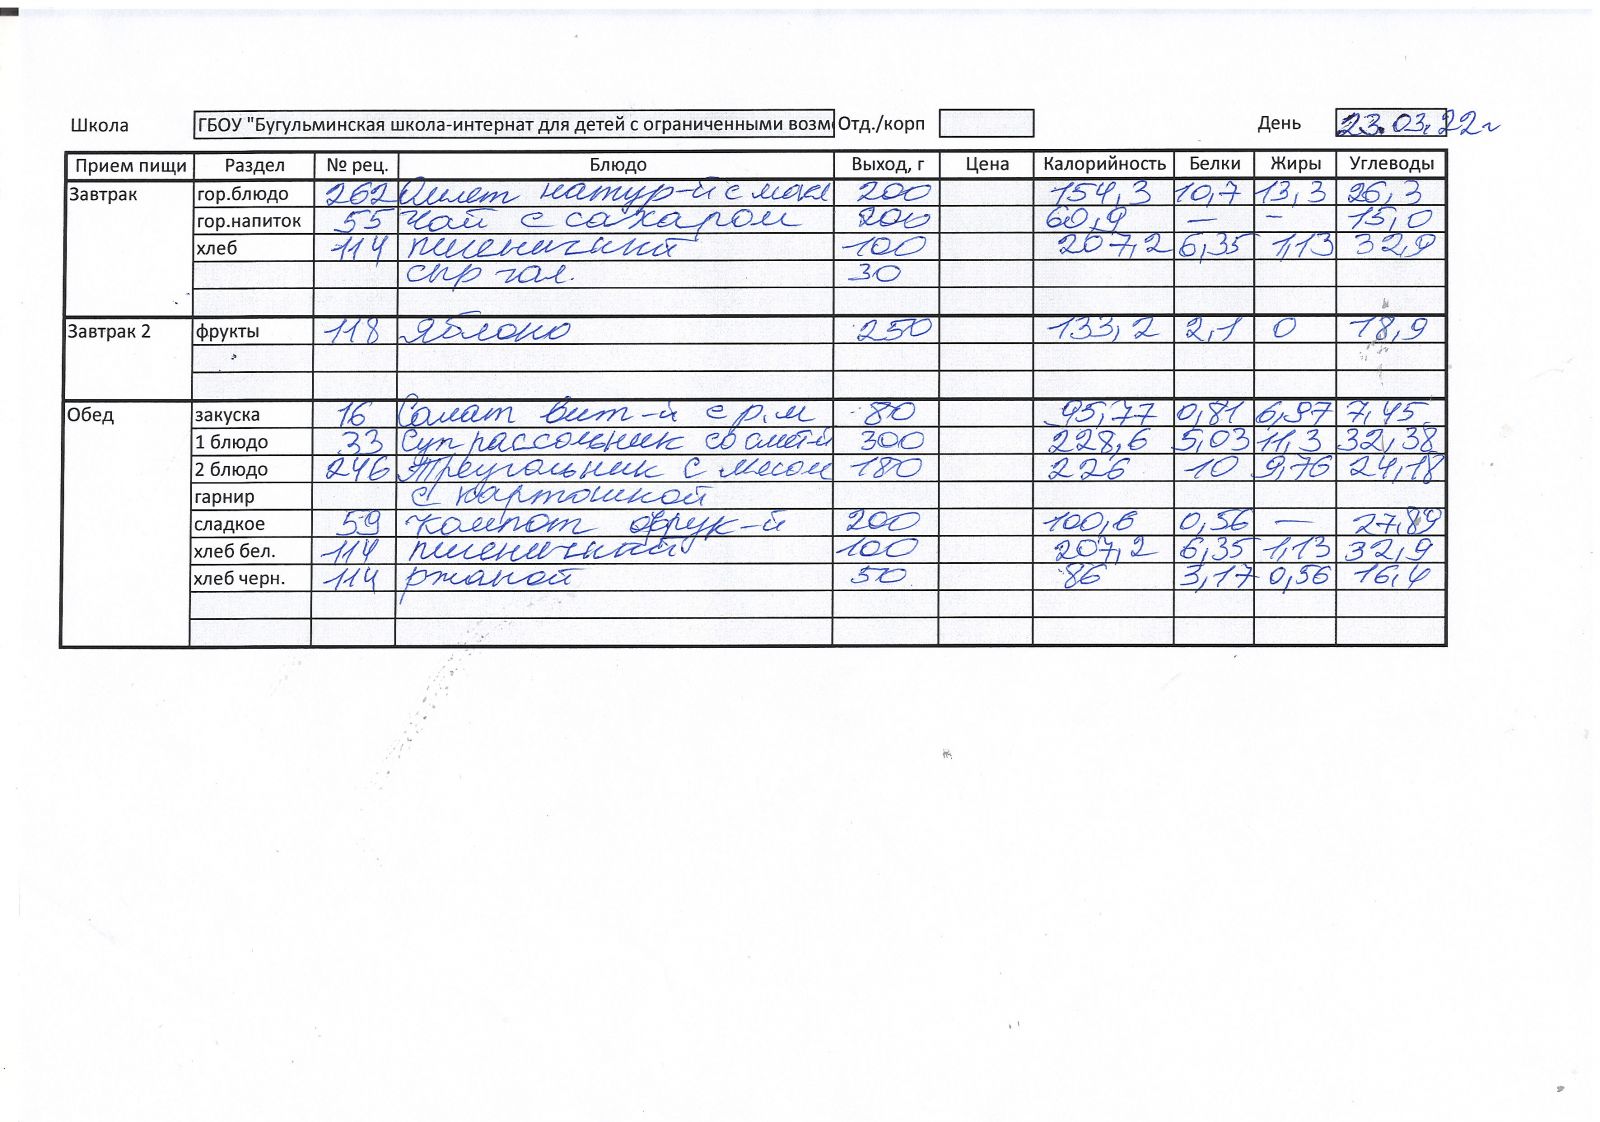 Школа ГБОУ "Бугульминская школа-интернат для детей с ограниченными возм Отд./корп День 23.03.22г
Прием пищи Раздел № рец. Блюдо Выход, г Цена Калорийность Белки Жиры Углеводы
Завтрак гор.блюдо 262 Омлет натур-й с масл 200 154,3 10,7 13,3 26,3
гор.напиток 55 Чай с сахаром 200 60,9 — - 15,0
хлеб 114 пшеничный 100 207,2 6,35 1,13 32,9
сыр гол. 30
Завтрак 2 фрукты 118 Яблоко 250 133,2 2,1 0 18,9
Обед закуска 16 Салат вит-й с р.м 80 95,77 0,81 6,97 7,45
1 блюдо 33 Суп рассольник со смет-й 300 228,6 5,03 11,3 32,38
2 блюдо 246 Треугольник с мясом 180 226 10 9,76 24,18
гарнир с картошкой
сладкое 59 Компот фрук-й 200 100,6 0,56 — 27,89
хлеб бел. 114 пшеничный 100 207,2 6,35 1,13 32,9
хлеб черн. 114 ржаной 50 86 3,17 0,56 16,4